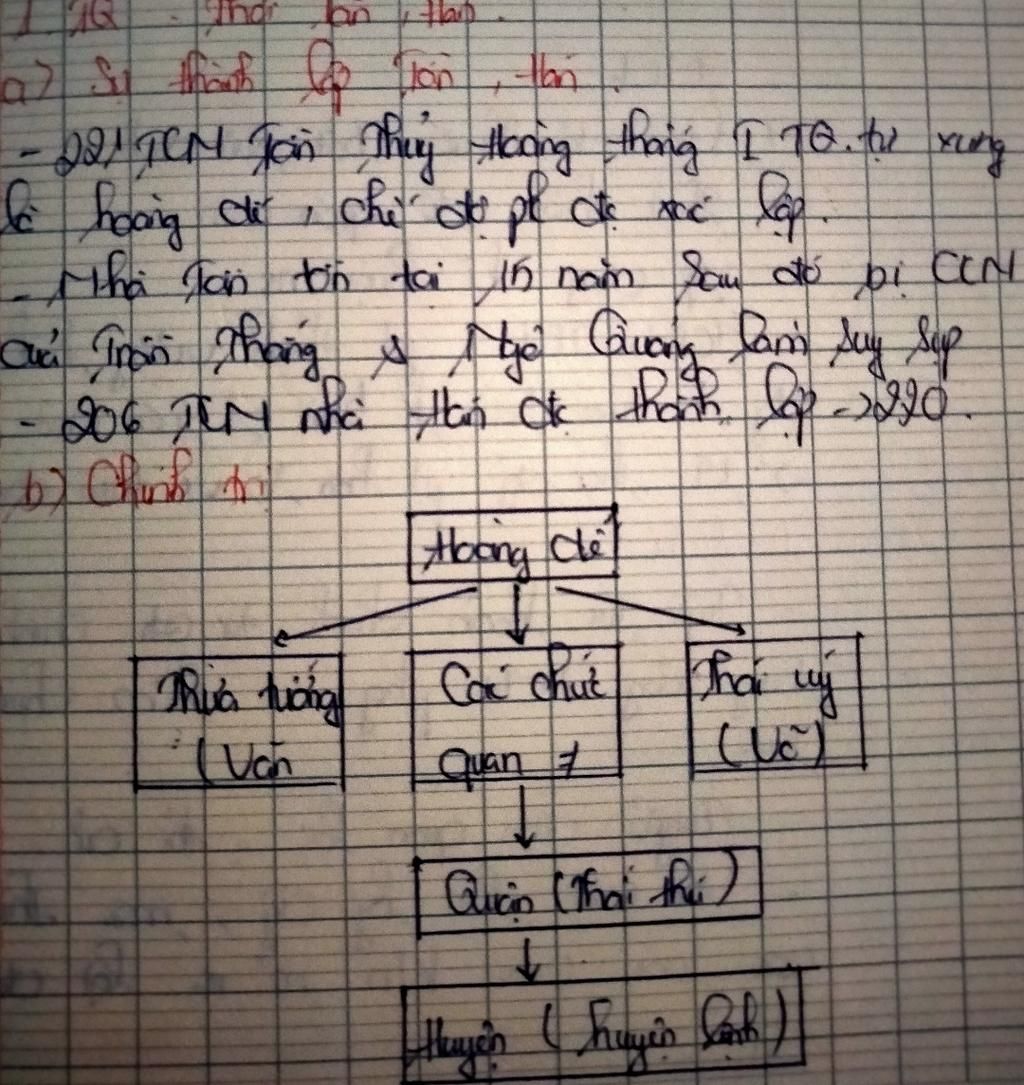 I TQ thời Tần, Hán.
a) Sự thành lập Tần, Hán.
- 221 TCN Tần Thuỷ Hoàng thống I TQ. tự xưng
là hoàng đế, chế độ pk đc xác lập.
- Nhà Tần tồn tại 15 năm sau đó bị CCN
của Trần Thắng & Ngô Quảng làm suy sụp
- 206 TCN nhà Hán đc thành lập -> 220.
b) Chính trị
Hoàng đế
Thừa tướng
(Văn
Các chức
quan ≠
Thái uý
(Võ)
Quận (Thái thú)
Huyện (huyện lệnh)